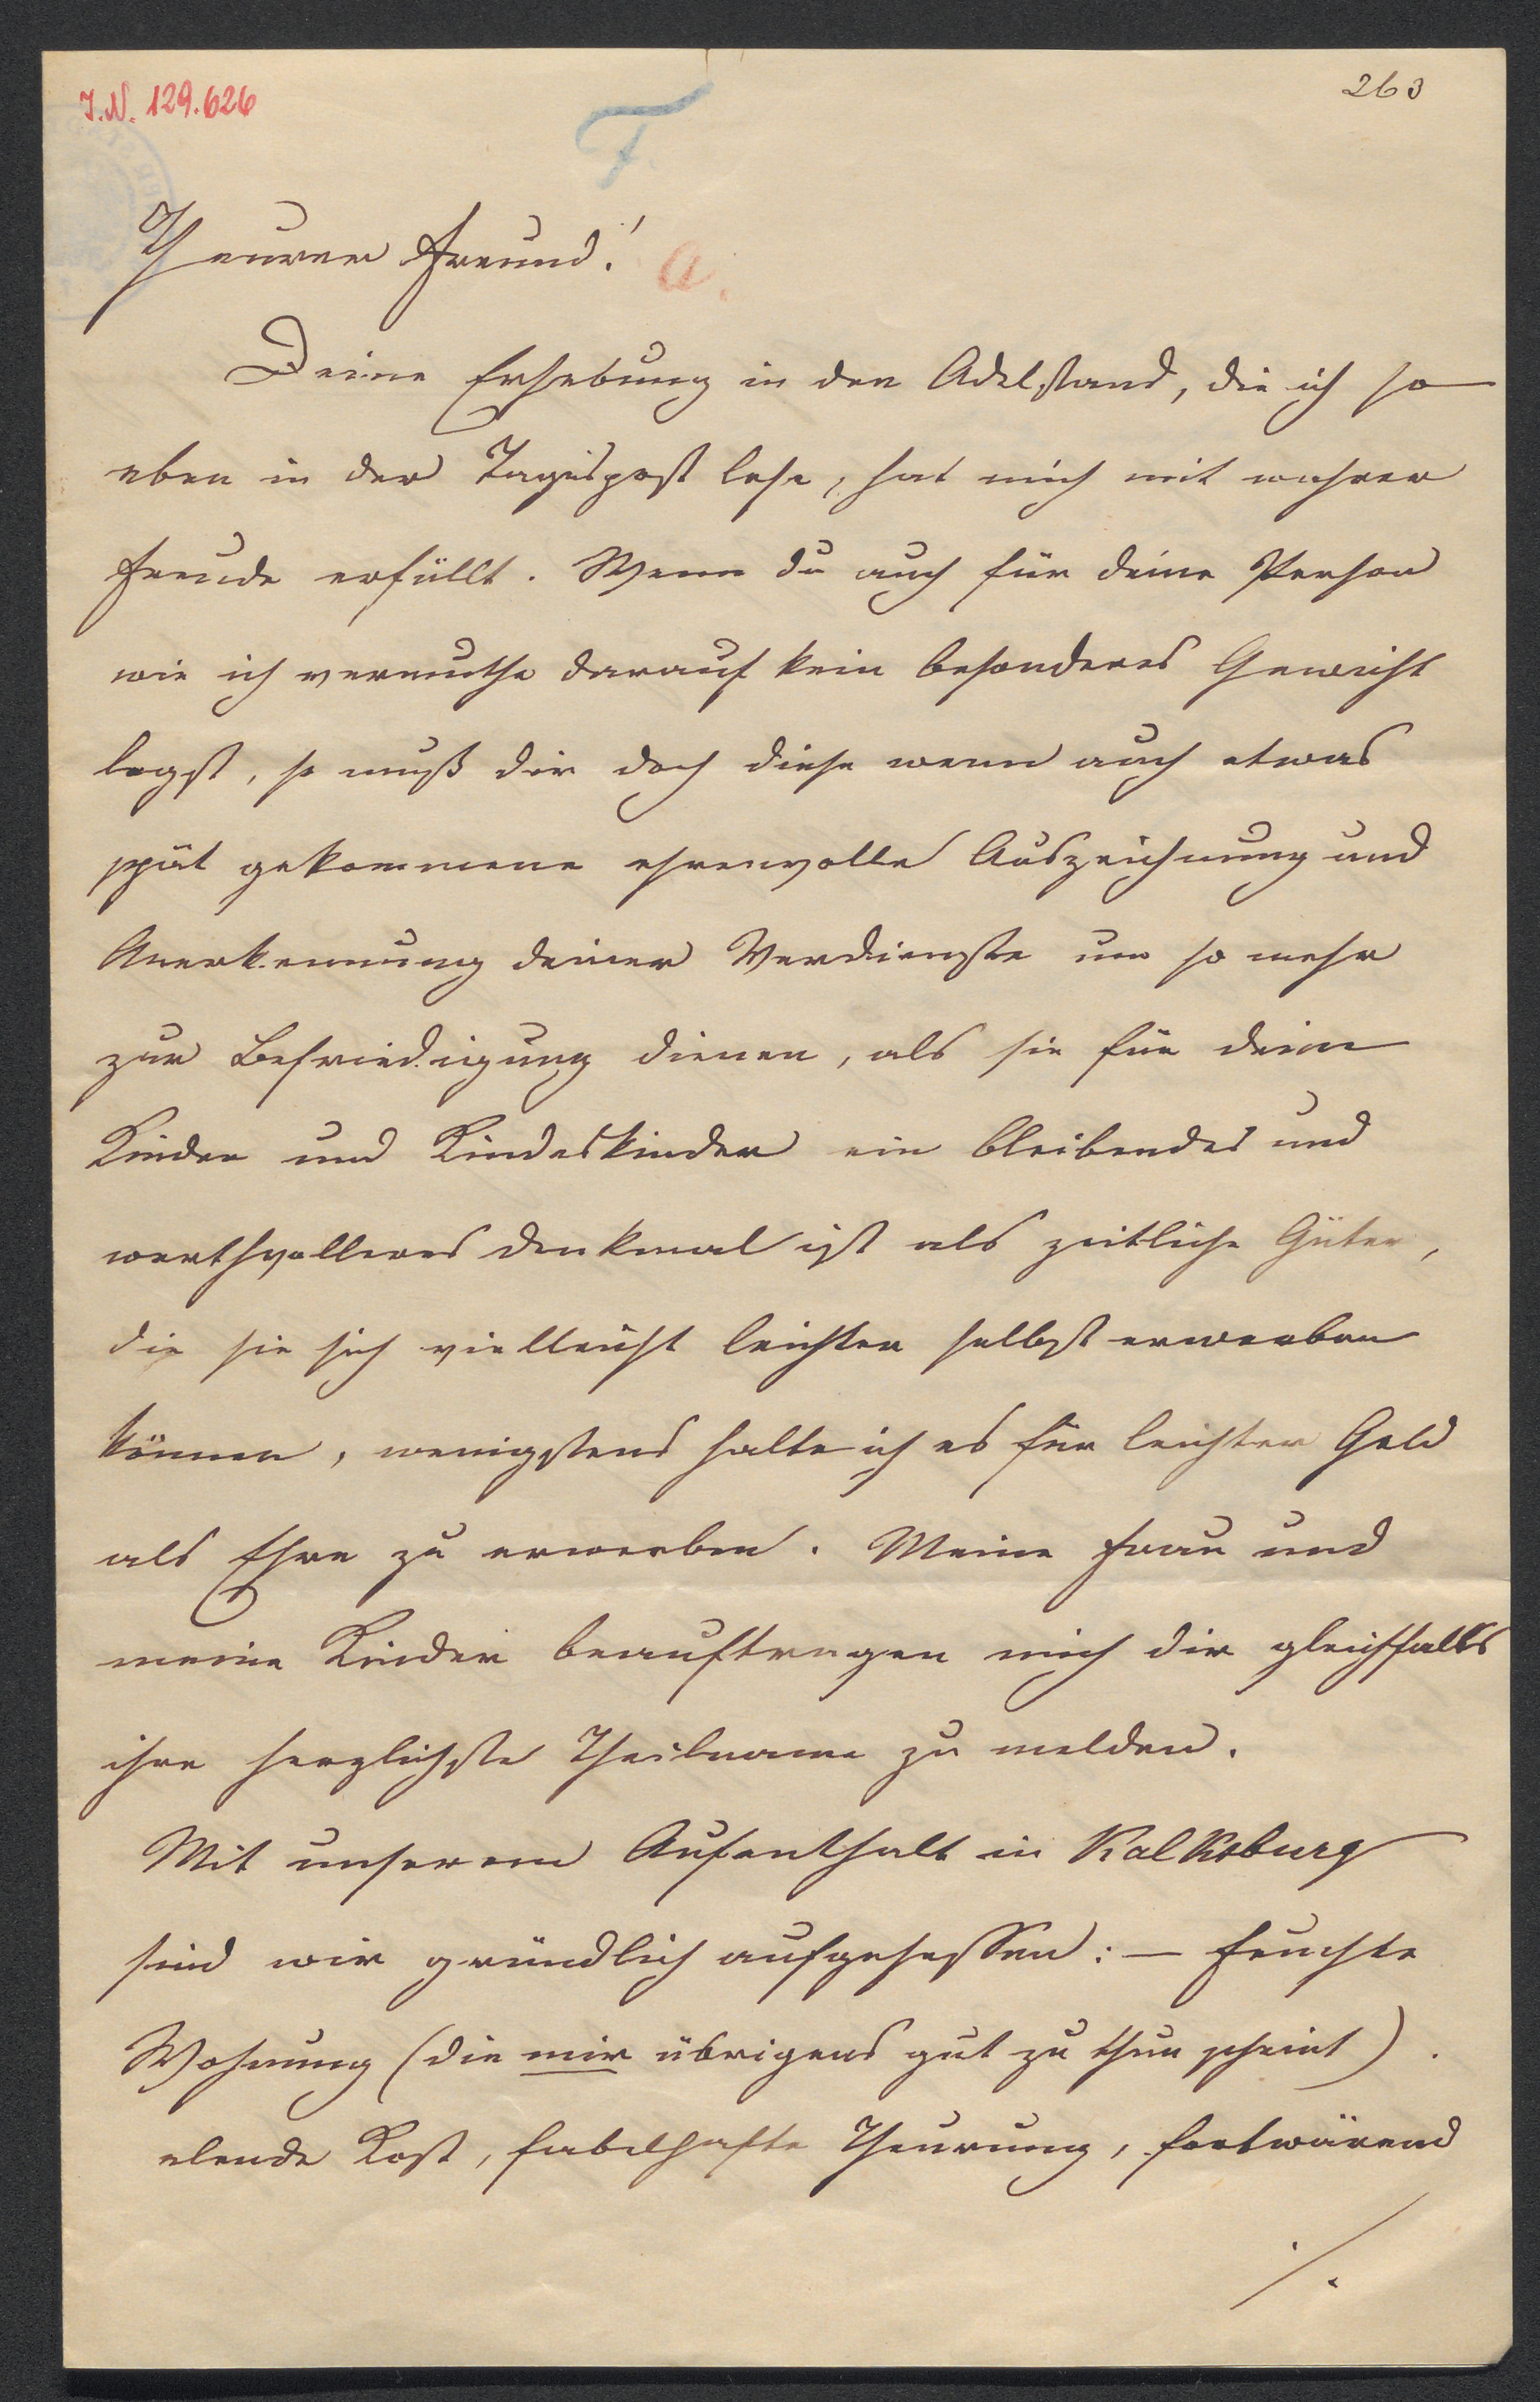 I.N. 129.626
263
F.
Theurer Freund!
a.
Deine Erhebung in den Adelstand, die ich so
eben in der Tagespost lese, hat mich mit wahrer
Freude erfüllt. Wenn du auch für deine Person
wie ich vermuthe darauf kein besonderes Gewicht
legst, so muß dir doch diese wenn auch etwas
spät gekommene ehrenvolle Auszeichnung und
Anerkennung deiner Verdienste um so mehr
zur Befriedigung dienen, als sie für deine
Kinder und Kindeskinder ein bleibendes und
werthvolleres Denkmal ist als zeitliche Güter,
die sie sich vielleicht leichter selbst erwerben
können, wenigstens halte ich es für leichter Geld
als Ehre zu erwerben. Meine Frau und
meine Kinder beauftragen mich dir gleichfalls
ihre herzlichste Theilname zu melden.
Mit unserem Aufenthalt in Kalksburg
sind wir gründlich aufgesessen: — feuchte
Wohnung (die mir übrigens gut zu thun scheint).
elende Kost, fabelhafte Theurung, fortwärend
./.